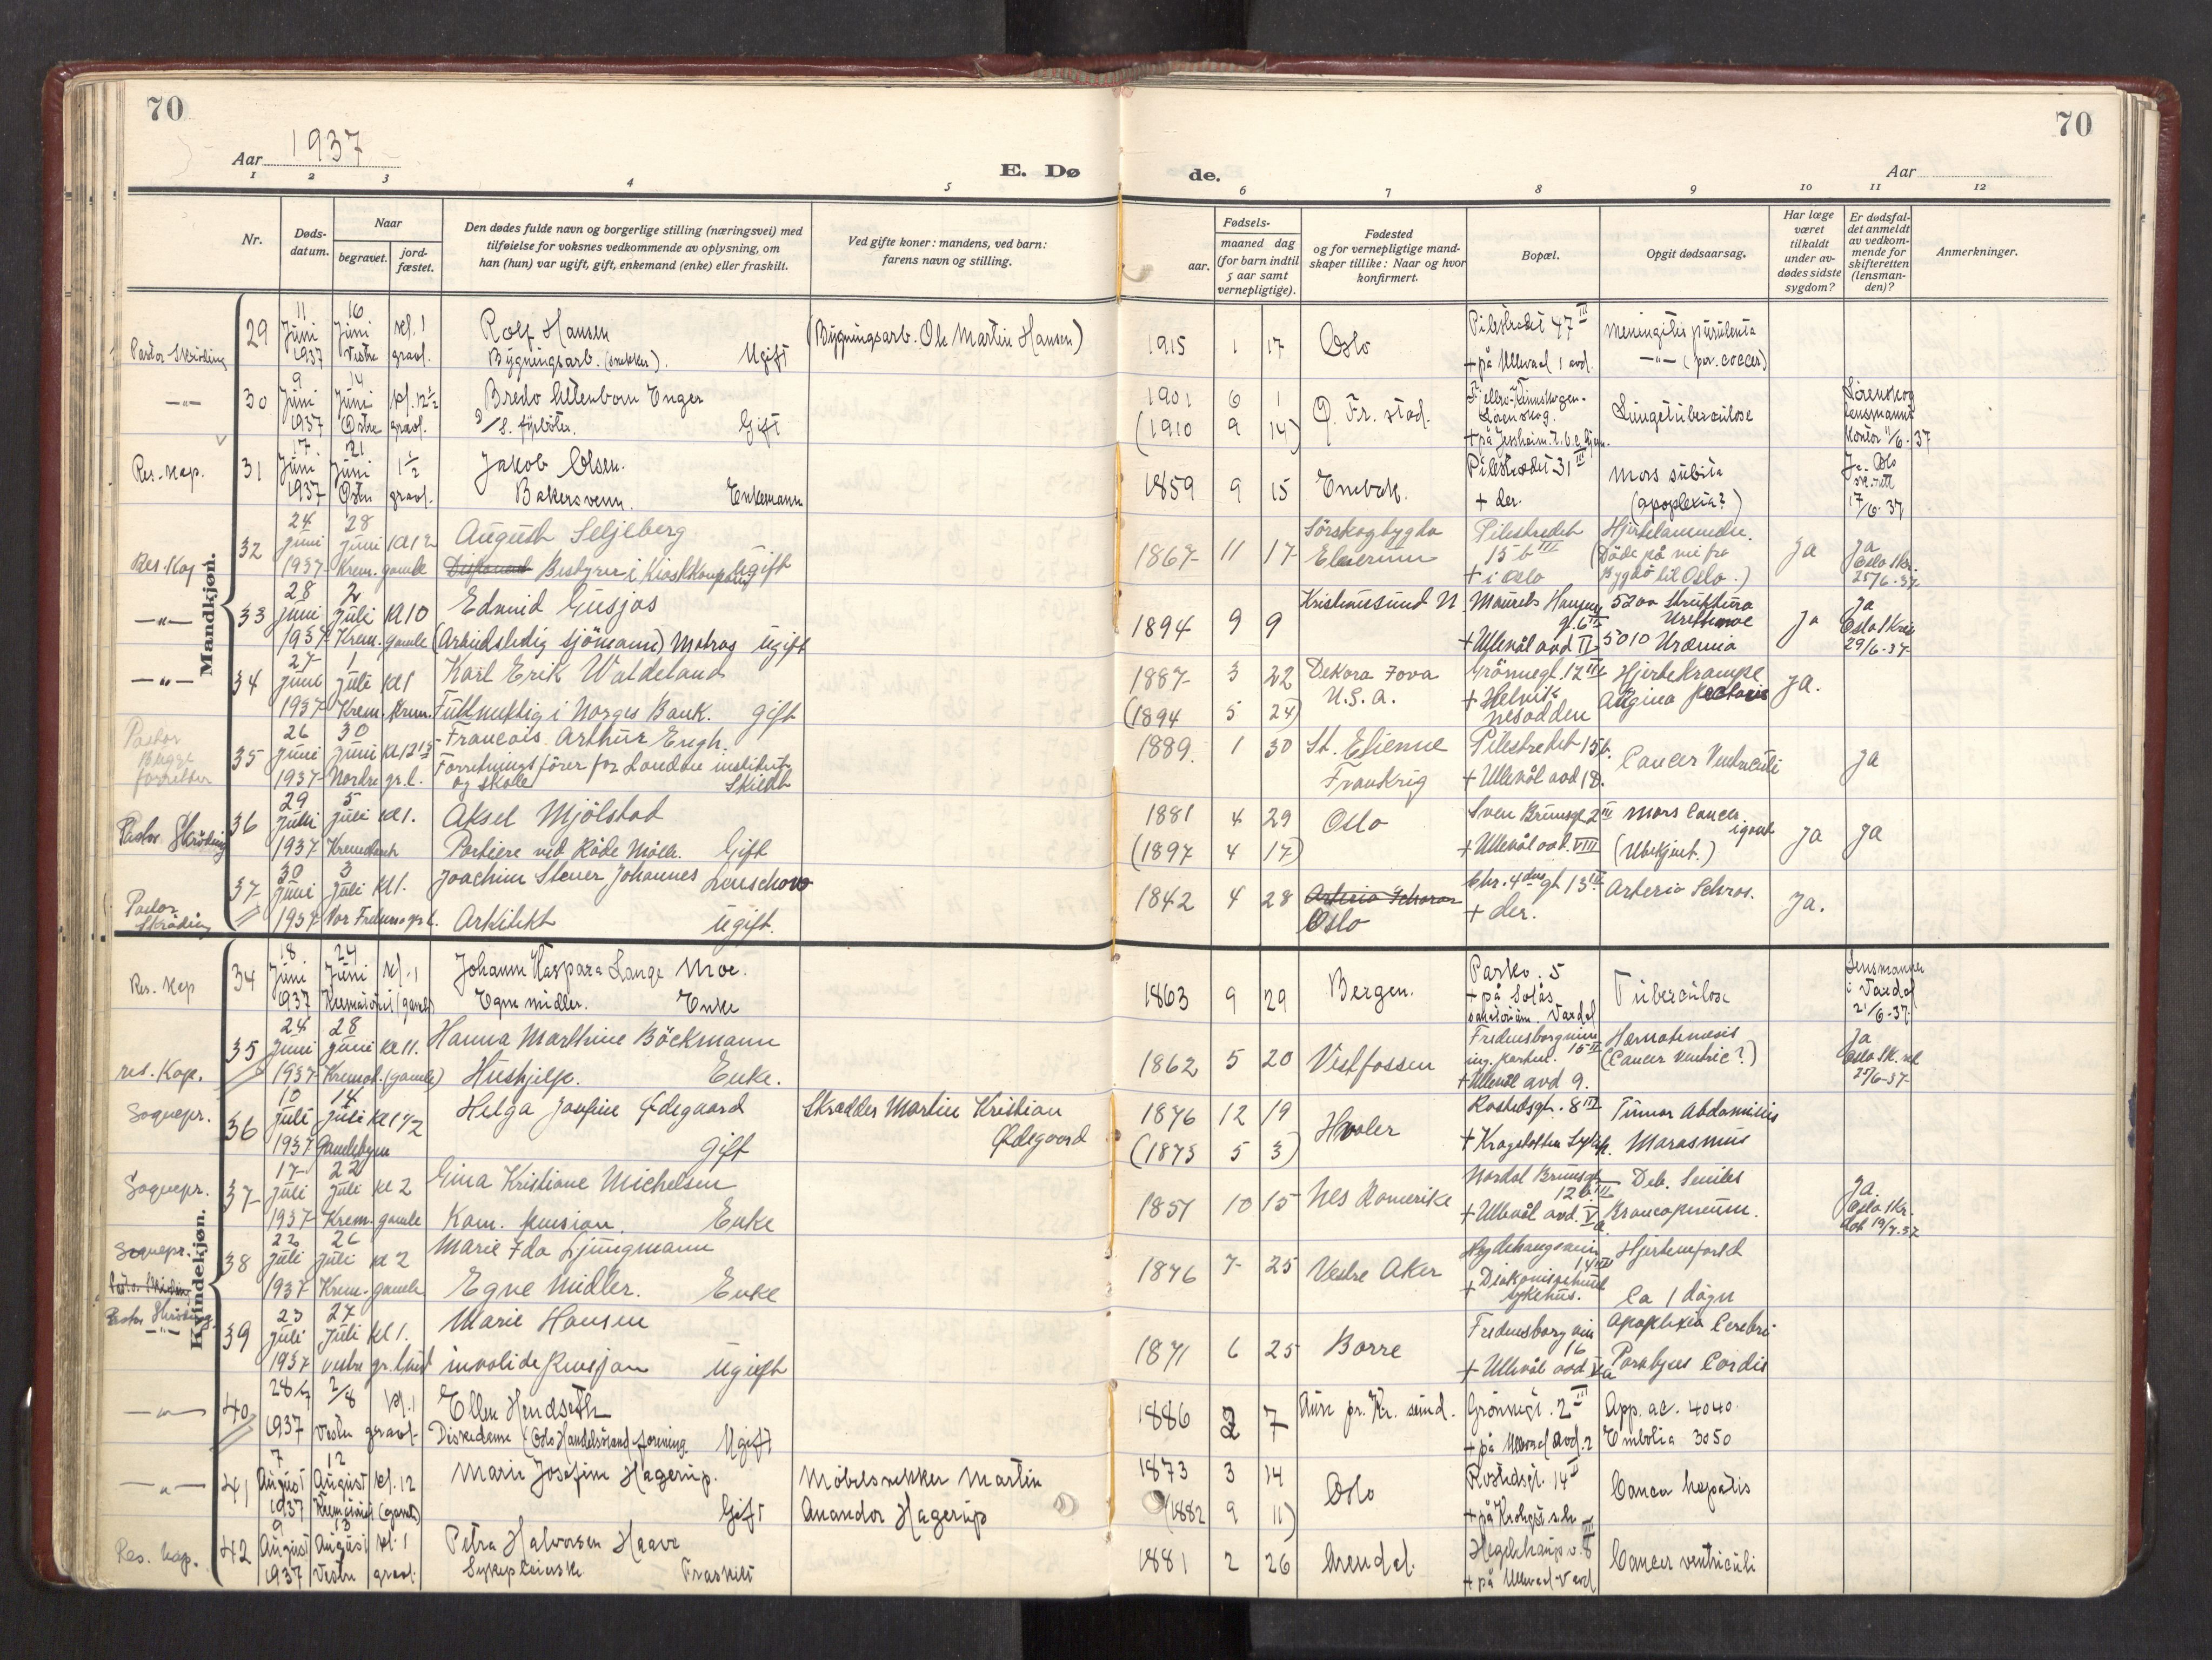 70
70
Aar 1937
E. Dø
de.
Aar
1 2 3 4 5 6 7 8 9 10 11 12
Nr.
Døds-
datum.
Naar
begravet.
jord-
fæstet.
Den dødes fulde navn og borgerlige stilling (næringsvei) med
tilføielse for voksnes vedkommende av oplysning, om
han (hun) var ugift, gift, enkemand (enke) eller fraskilt.
Ved gifte koner: mandens, ved barn:
farens navn og stilling.
Fødsels-
aar.
maaned dag
(for barn indtil
5 aar samt
vernepligtige).
Fødested
og for vernepligtige mand-
skaper tillike: Naar og hvor
konfirmert.
Bopæl.
Opgit dødsaarsag.
Har læge
været
tilkaldt
under av-
dødes sidste
sygdom?
Er dødsfal-
det anmeldt
av vedkom-
mende for
skifteretten
(lensman-
den)?
Anmerkninger.
Mandkjøn.
29 11 Juni 1937 16 Juni Vestre kl. 1 gravl.
Rolf Hansen
Bygningsarb. (snekker). Ugift
(Bygningsarb. Ole Martin Hansen)
1915 1 17 Oslo
Pilestredet 47 III
+ på Ullevaal 1 avd.
Meningitis purulenta
30 9 Juni 1937 14 Juni Østre kl. 12½ gravl.
Bredo Uttenborn Enger
Gift
1901 6 1
(1910 9 14)
Lungetuberculose
Lørenskog
lensmanns
kontor 11/6-37
Res. Kap.
31 17 Juni 1937 21 Juni Østre 1½ gravl.
Jakob Olsen.
Bakersvenn. Enkemann
1859 9 15
Pilestredet 31 III
+ der.
Mors subita
(apoplexia?)
Ja. Oslo
17/6-37
Res. Kap
32 24 Juni 1937 28 Juni Krem. kl 12 gamle
August Seljeberg
Bestyrer i Kioskkompani Ugift
1867 11 17
Sörskogbygda
Elverum
Pilestredet
15 b III
+ i Oslo
Hjertelammelse.
(Döde på vei fra
Bygdö til Oslo.)
Ja
Ja
Oslo Skr.
25/6-37
33 28 Juni 1937 2 Juli Krem. kl 10 gamle
Edmund Gusjås
(Arbeidsledig sjömann) Matros Ugift
1894 9 9
Kristiansund N.
+ Ullevål avd II
5200 Struktura
Urethrae
5010 Uræmia
Ja
Ja
Oslo Skr.
29/6-37
34 27 Juni 1937 1 Juli Krem. kl 1 Krem.
Karl Erik Waldeland
Fullmektig i Norges Bank. gift
1887 3 22
(1894 5 24)
Dekora Iova
U.S.A.
Grönnegt. 12 III
+ Helvik
nesodden
Hjertekrampe
Angina pectoris
Ja.
Pastor
35 26 Juni 1937 30 Juni Nordre gr.l.
Francois Arthur Engh.
Forretningsförer for London institut
og skole Skildt
1889. 1 30
St. Etienne
Frankrig
Pilestredet 15 b.
+ Ullevål avd 18.
Cancer Ventriculi
Ja
Pastor Skröding
36 29 Juni 1937 5 Juli kl 1.
Aksel Mjölstad
Portiere ved Röde Mölle. Gift
1881 4 29
(1897 4 17)
Oslo
+ Ullevål avd. VIII
Mors Cancer
(Ubekjent.)
Ja
Ja
Pastor
Skröding
37 30 Juni 1937 3 Juli Vor Frelsers gr.l. kl 1.
Joachim Stener Johannes Lenschow
Arkitekt Ugift.
1842 4 28
Oslo
Chr. 4des gt 13 III
+ der.
Arterio Schros.
Ja.
Kvindekjøn.
Res. Kap
34 18 Juni 1937 24 Juni Krematoriet (gamle) kl. 1
Johanne Kaspara Lange Moe.
Egne midler. Enke
1863 9 29 Bergen.
Parkv. 5
+ på Solås
sanatorium. Vardal
Tuberculose
Lensmannen
i Vardal
21/6-37
res. Kap.
35 24 Juni 1937 28 Juni Kremat. (gamle) kl 11.
Hanna Marthine Böckmann
Hushjelp. Enke.
1862 5 20 Vestfossen
+ Ullevål avd 9.
Hæmatemesis
(Cancer Ventric?)
Ja
Sognepr.
36 10 Juli 1937 14 Juli Gamlebyen kl 1½
Helga Josefine Ødegaard
Gift
Skredder Martin Kristian
Ødegaard
1876 12 19
(1873 5 3)
Hvaler
Rostedsgt. 8 III
Tumor Abdominis
Marasmus
Sognepr.
37 17 Juli 1937 22 Juli Krem. kl 2 gamle
Gina Kristiane Michelsen
Kom. pension. Enke
1851 10 15 Nes Romerike
Nordal Brunsgt
12 b. III
+ Ullevål avd. V a
Deb. Senilis
Broncopneum.
Ja
Oslo Skr.
19/7-37
Sognepr.
38 22 Juli 1937 26 Juli Krem. kl 2 gamle
Marie Ida Ljungmann
Egne Midler. Enke
1876 7 25 Vestre Aker
+ Diakonissehuset
sykehus.
Hjerteinfarkt
Ca 1 dögn
Pastor Skröding
39 23 Juli 1937 27 Juli Vestre gr.lund kl 1.
Marie Hansen
invalide pensjon Ugift
1871 6 25 Borre
Fredensborgvei
16
+ Ullevål avd V a
Apoplexia Cerebri
Paralyses Cordis
40 28/7 1937 2/8 Vestre kl. 1 gravl.
Ellen Hendseth
Diskedame (Oslo Handelsstands forening Ugift
1886 2 7
Aure pr. Kr. sund.
Grönnegt. 2 III
+ på Ullevaal avd. 2
App. ac. 4040.
Embolia 3050
41 7 August 1937 12 August Krematoriet (gamle) kl. 12
Marie Josefine Hagerup.
Gift
Möbelsnekker Martin
Anandor Hagerup
1873 3 14
(1882 9 11)
Oslo
Rostedsgt. 14 II
Cancer hepatis
Res. Kap.
42 9 August 1937 13 August Vestre kl. 1 gravl.
Petra Halvorsen Haave
Sykepleierske Fraskilt
1881 2 26 Arendal.
+ på Ullevaal V avd
Cancer ventriculi